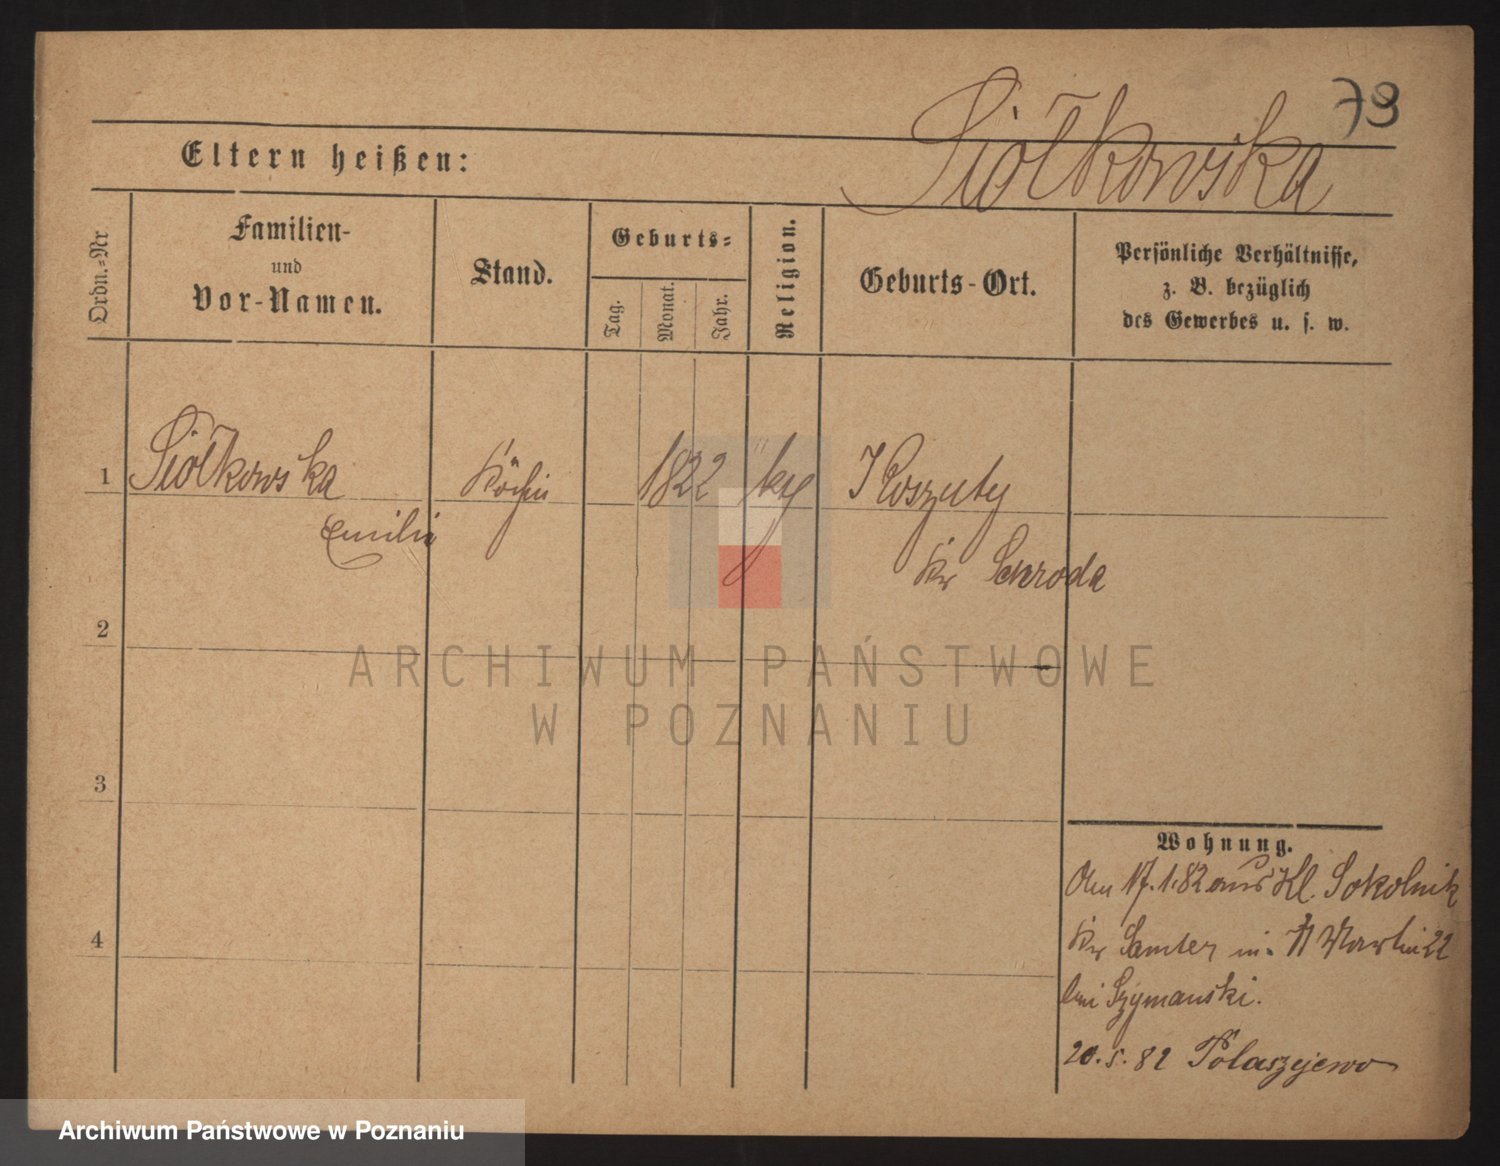 79
Siółkowska
Eltern heißen:
Ordn.-Nr
Familien-
und
Vor-Namen.
Stand.
Geburts-
Tag.
Monat.
Jahr.
Religion.
Geburts-Ort.
Persönliche Verhältnisse,
z. B. bezüglich
des Gewerbes u. s. w.
1 Siółkowska Köchin 1822 kt Koszuty
Emilie
Kr Schroda
2
3
4
ARCHIWUM PAŃSTWOWE
W POZNANIU
Wohnung.
17.1.82 aus Kl. Sokolnik
Kr Samter in Martin 22
bei Szymanski.
20.5.82 Polaszejewo
Archiwum Państwowe w Poznaniu